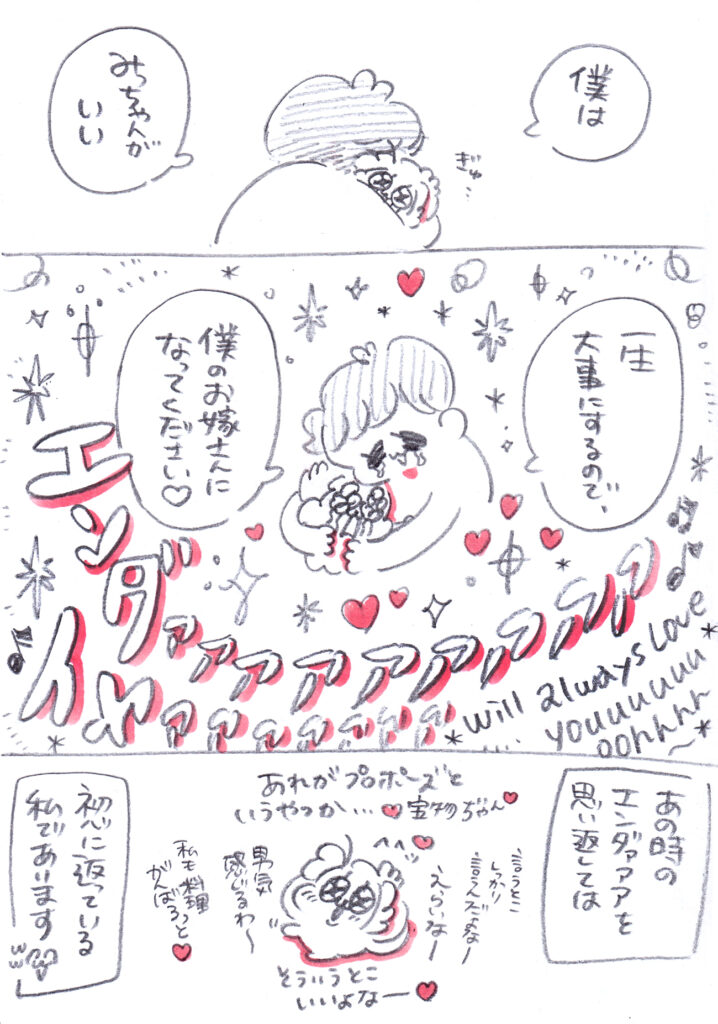 僕は
みちゃんが
いい
ぎゅ…
一生
大事にするので、
僕のお嫁さんに
なってください♡
エンダァァァァァァァァァ
イヤァァァァァァァァ
will always Love
youuuuuuu
oohhhh~
あの時の
エンダァァァを
思い返しては
あれがプロポーズと
いうやつか…♥宝物ぢゃん♥
へへッ♥
言うとこ
しっかり
言えんだよな〜
えらいな〜
男気
感じるわ〜
私も料理
がんばろっと
♥
そういうとこ
いいよなー♥
初心に返っている
私であります
ww